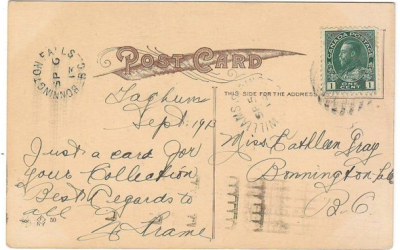 BONNINGTON FALLS B.C.
SP 6
13
POST CARD
CANADA POSTAGE
1 ONE CENT 1
THIS SIDE FOR THE ADDRESS
Taghum
Sept. 1913
Just a card for
your Collection
Best Regards to
all
Miss Kathleen Gray
Bonnington
B.C